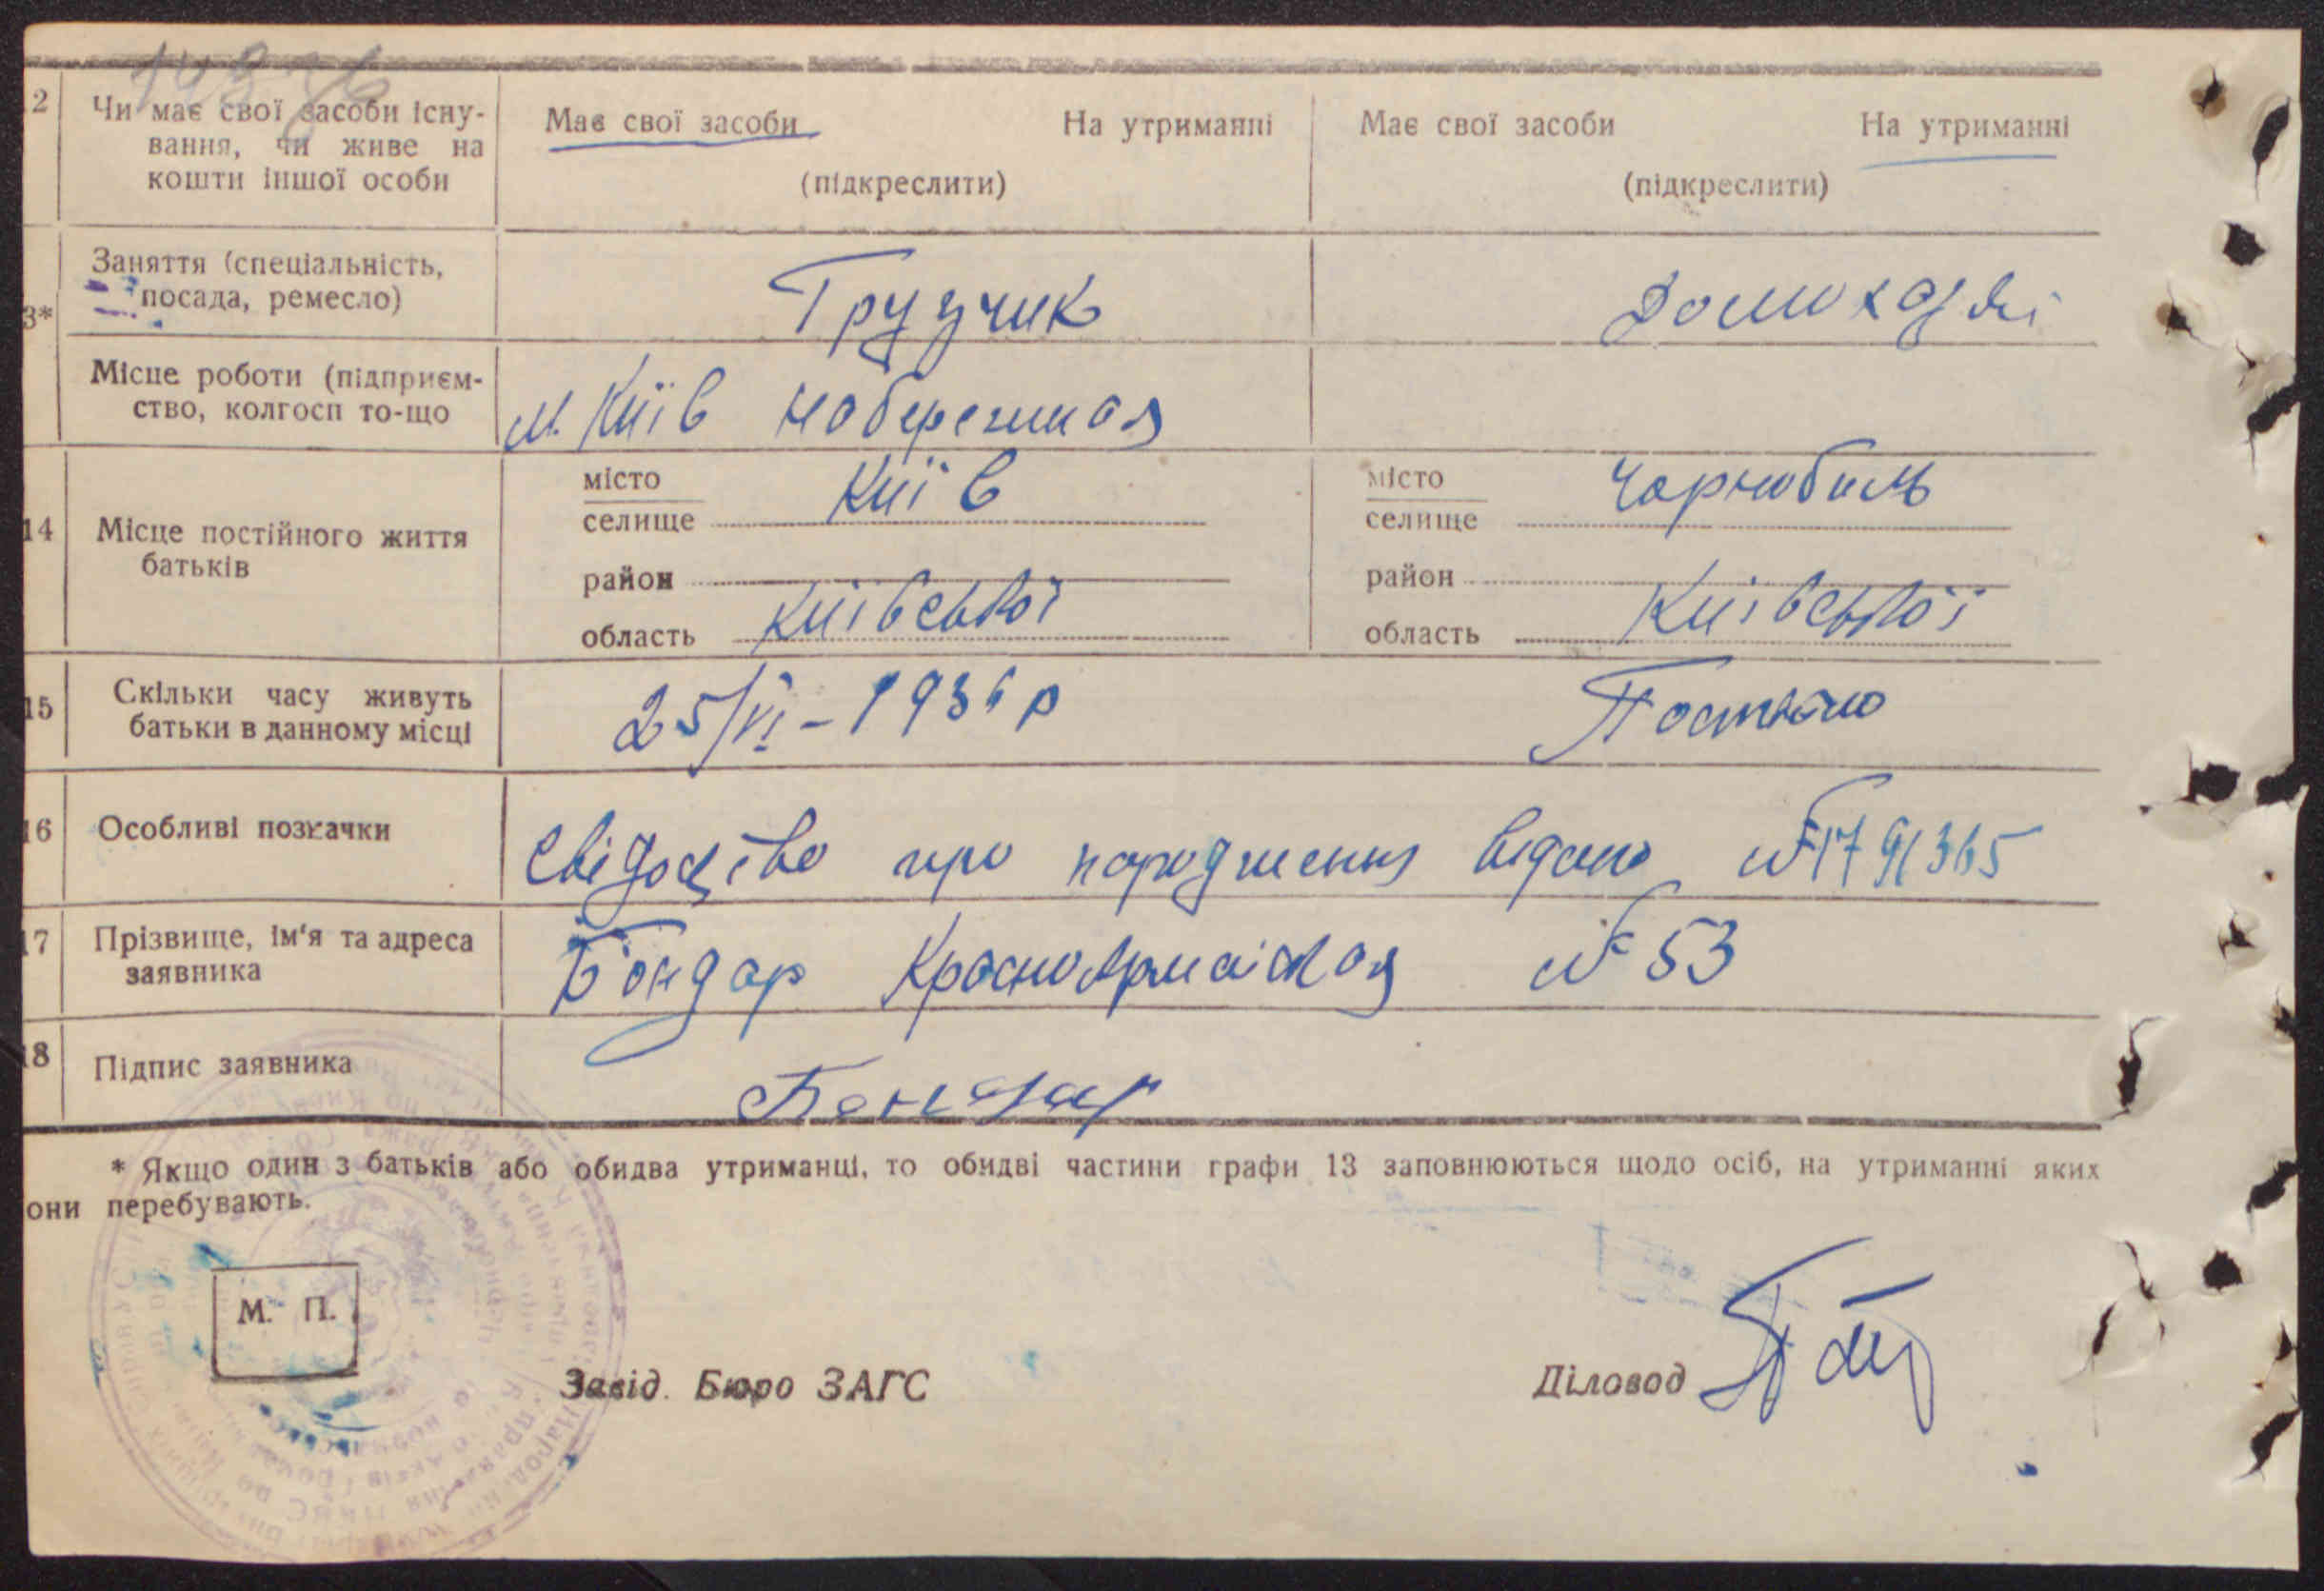 2 Чи має свої засоби існу-
вання, чи живе на
кошти іншої особи
Має свої засоби На утриманні Має свої засоби На утриманні
(підкреслити) (підкреслити)
3* Заняття (спеціальність,
посада, ремесло)
Грузчик Домохазяі
Місце роботи (підприєм-
ство, колгосп то-що
м. Київ Набережная
14 Місце постійного життя
батьків
місто Київ місто Чорнобиль
селище селище
район район
область Київської область Київської
15 Скільки часу живуть
батьки в данному місці
25/VI - 1936 р Постійно
16 Особливі позначки
Свідоцтво про народження видано № 1791365
17 Прізвище, ім‘я та адреса
заявника
Бондар Красноармейская № 53
18 Підпис заявника
Бондар
* Якщо один з батьків або обидва утриманці, то обидві частини графи 13 заповнюються щодо осіб, на утриманні яких
они перебувають.
М. П.
Завід. Бюро ЗАГС Діловод